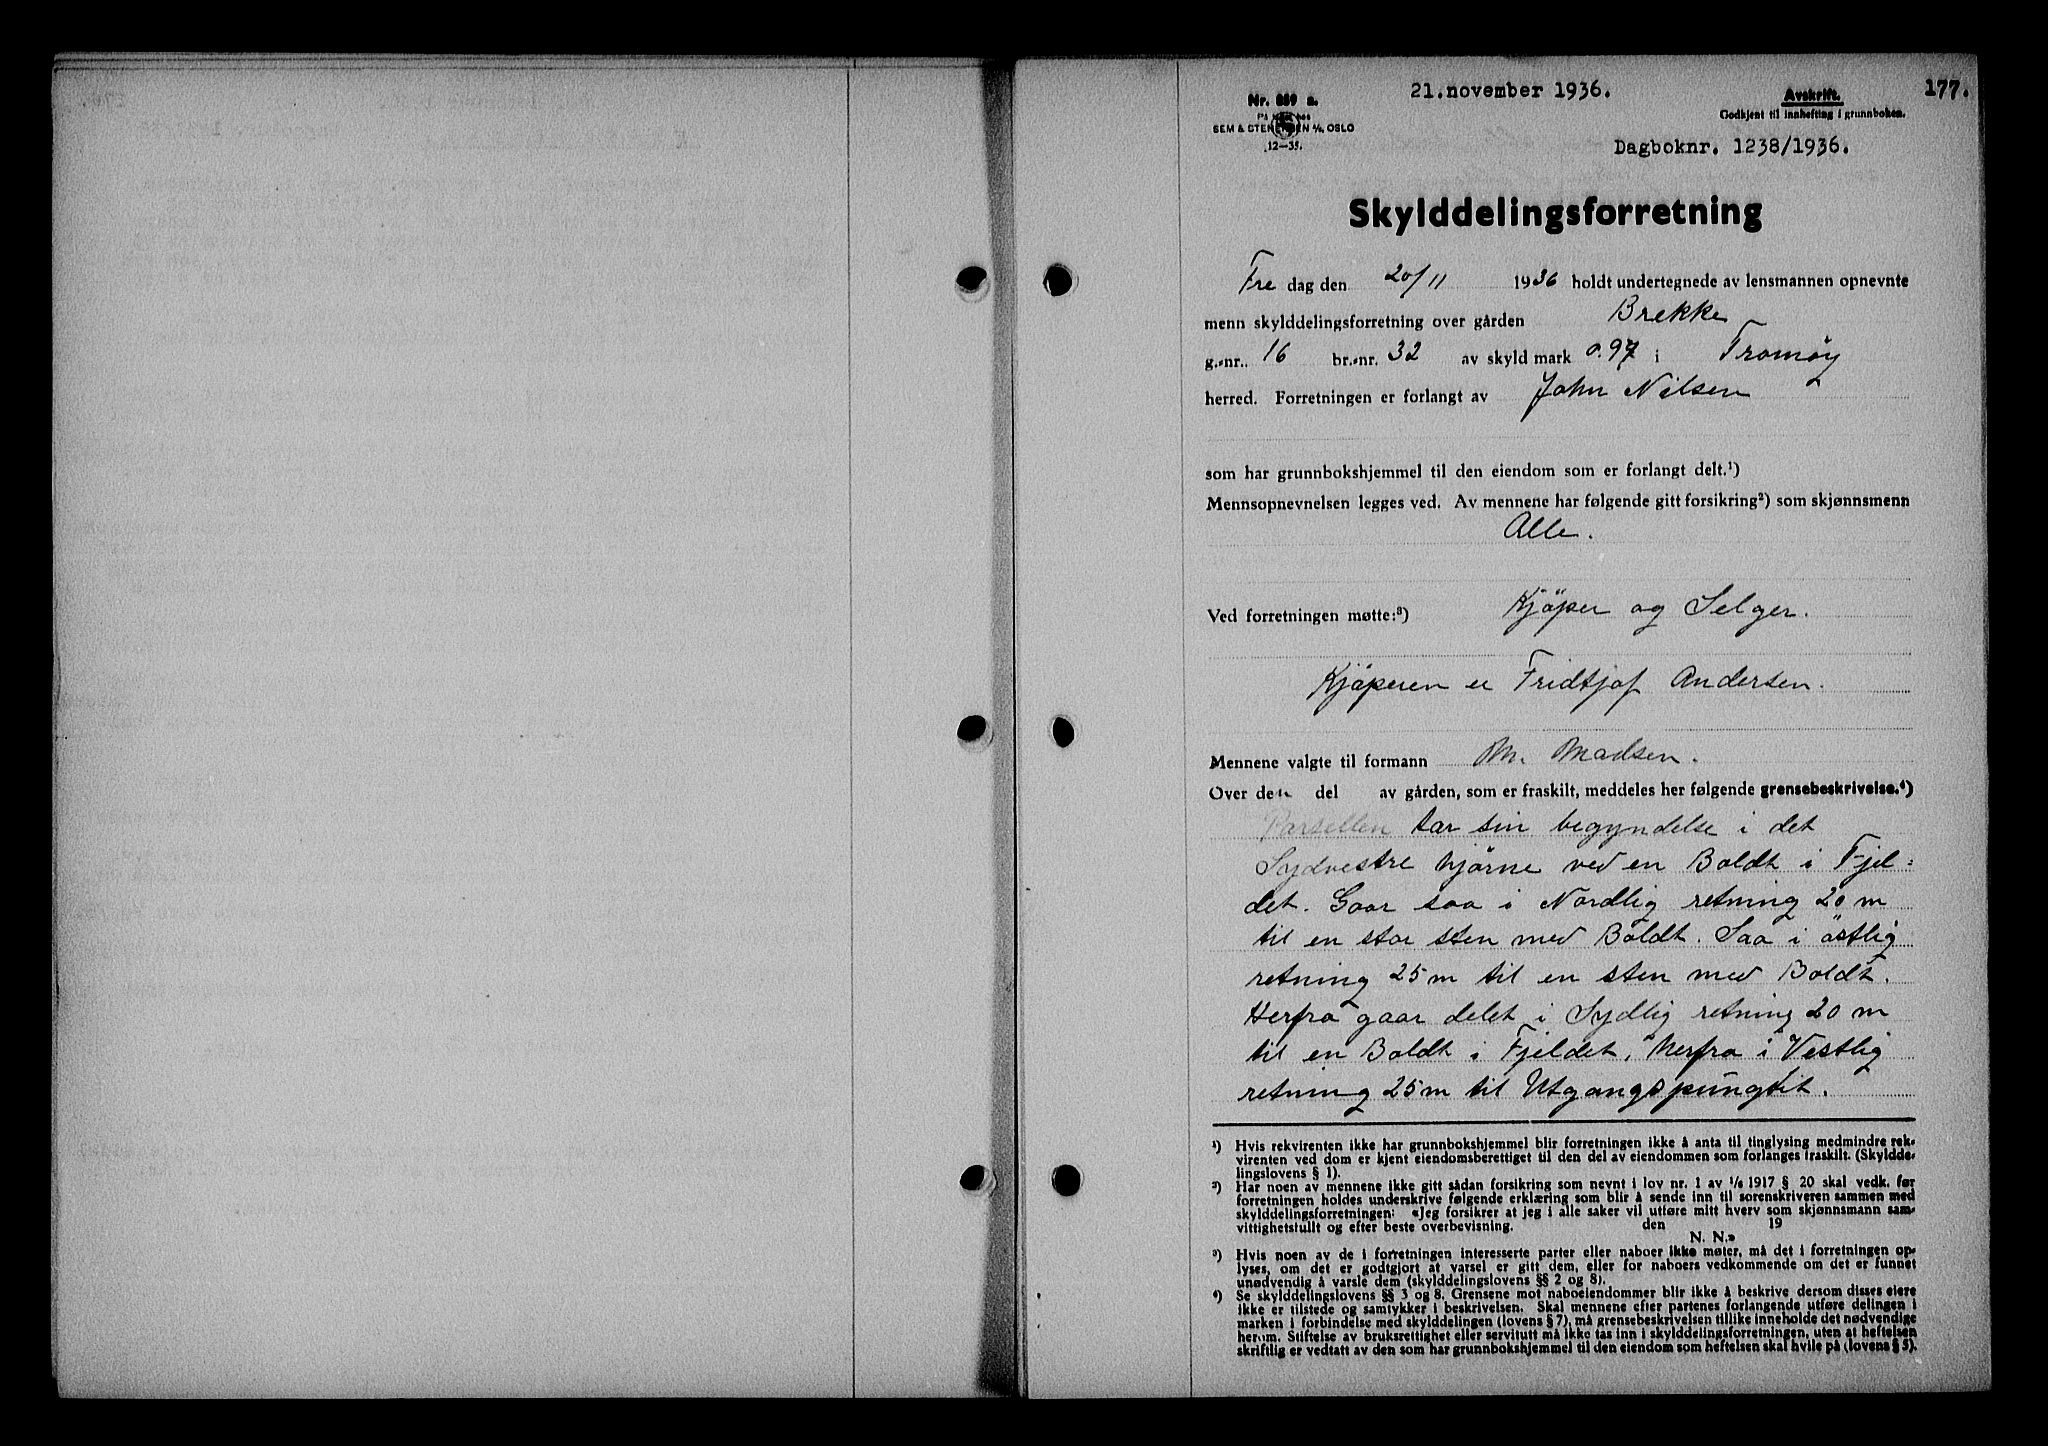 21.november 1936.
Avskrift.
177.
Nr. 859 a.
Godkjent til innhefting i grunnboken.
SEM & STENERSEN A/S, OSLO
12—35.
Dagboknr. 1238/1936.
Skylddelingsforretning
Fre dag den 20/11 1936 holdt undertegnede av lensmannen opnevnte
menn skylddelingsforretning over gården Brekke
g.-nr. 16 br.-nr. 32 av skyld mark 0.97 i Tromøy
herred. Forretningen er forlangt av John Nilsen
som har grunnbokshjemmel til den eiendom som er forlangt delt.¹)
Mennsopnevnelsen legges ved. Av mennene har følgende gitt forsikring²) som skjønnsmenn
Alle.
Ved forretningen møtte:³) Kjöper og Selger.
Kjöperen er Fridtjof Andersen.
Mennene valgte til formann M. Madsen.
Over den del av gården, som er fraskilt, meddeles her følgende grensebeskrivelse.⁴)
Parsellen tar sin begyndelse i det
Sydvestre hjörne ved en Boldt i Fjel-
det. Gaar saa i Nordlig retning 20 m
til en stor sten med Boldt. Saa i östlig
retning 25 m til en sten med Boldt.
Herfra gaar delet i Sydlig retning 20 m
til en Boldt i Fjeldet, herfra i Vestlig
retning 25 m til Utgangspungtit.
¹) Hvis rekvirenten ikke har grunnbokshjemmel blir forretningen ikke å anta til tinglysing medmindre rek-
virenten ved dom er kjent eiendomsberettiget til den del av eiendommen som forlanges fraskilt. (Skyldde-
lingslovens § 1).
²) Har noen av mennene ikke gitt sådan forsikring som nevnt i lov nr. 1 av 1/6 1917 § 20 skal vedk. før
forretningen holdes underskrive følgende erklæring som blir å sende inn til sorenskriveren sammen med
skylddelingsforretningen: «Jeg forsikrer at jeg i alle saker vil utføre mitt hverv som skjønnsmann sam-
vittighetsfullt og efter beste overbevisning. den 19
N. N.»
³) Hvis noen av de i forretningen interesserte parter eller naboer ikke møter, må det i forretningen op-
lyses, om det er godtgjort at varsel er gitt dem, eller for naboers vedkommende om det er funnet
unødvendig å varsle dem (skylddelingslovens §§ 2 og 8).
⁴) Se skylddelingslovens §§ 3 og 8. Grensene mot naboeiendommer blir ikke å beskrive dersom disses eiere
ikke er tilstede og samtykker i beskrivelsen. Skal mennene efter partenes forlangende utføre delingen i
marken i forbindelse med skylddelingen (lovens § 7), må grensebeskrivelsen tillike inneholde det nødvendige
herom. Stiftelse av bruksrettighet eller servitutt må ikke tas inn i skylddelingsforretningen, uten at heftelsen
skriftlig er vedtatt av den som har grunnbokshjemmel til den eiendom som heftelsen skal hvile på (lovens § 5).